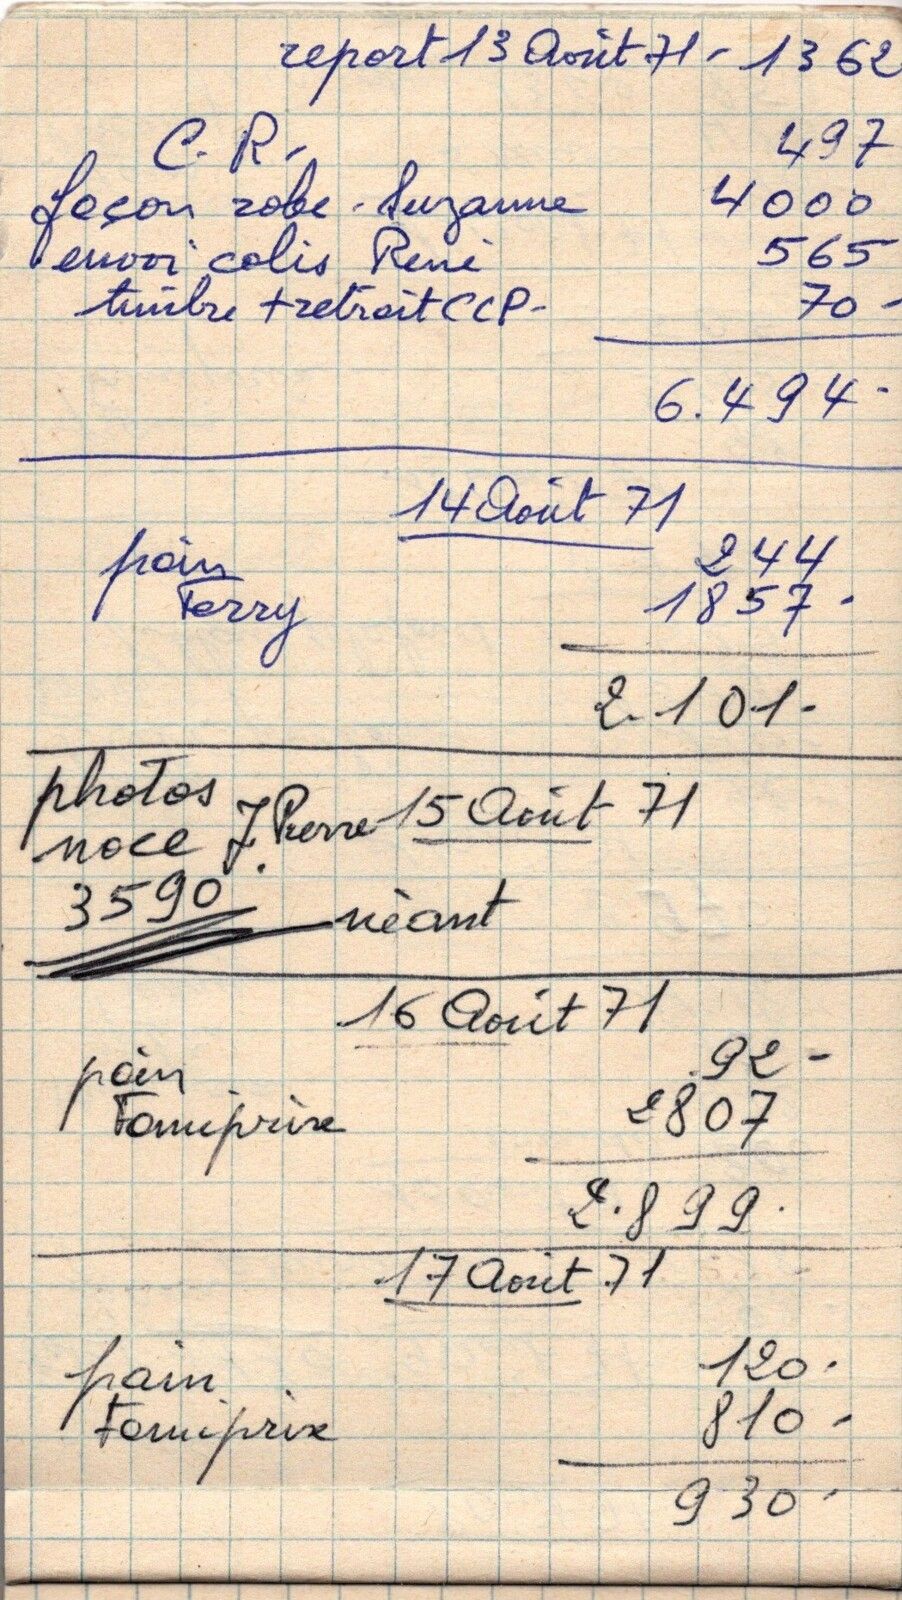 report 13 Août 71 - 1362
C. R. - 497
façon robe. Suzanne 4000
envoi colis René 565
timbre + retrait CCP - 70 -
6.494 -
14 Août 71
pain 244
Ferry 1857 -
2.101 -
photos
noce J. Pierre 15 Août 71
3590
néant
16 Août 71
pain 92 -
Famiprix 2807
2.899.
17 Août 71
pain 120.
Famiprix 810 -
930.